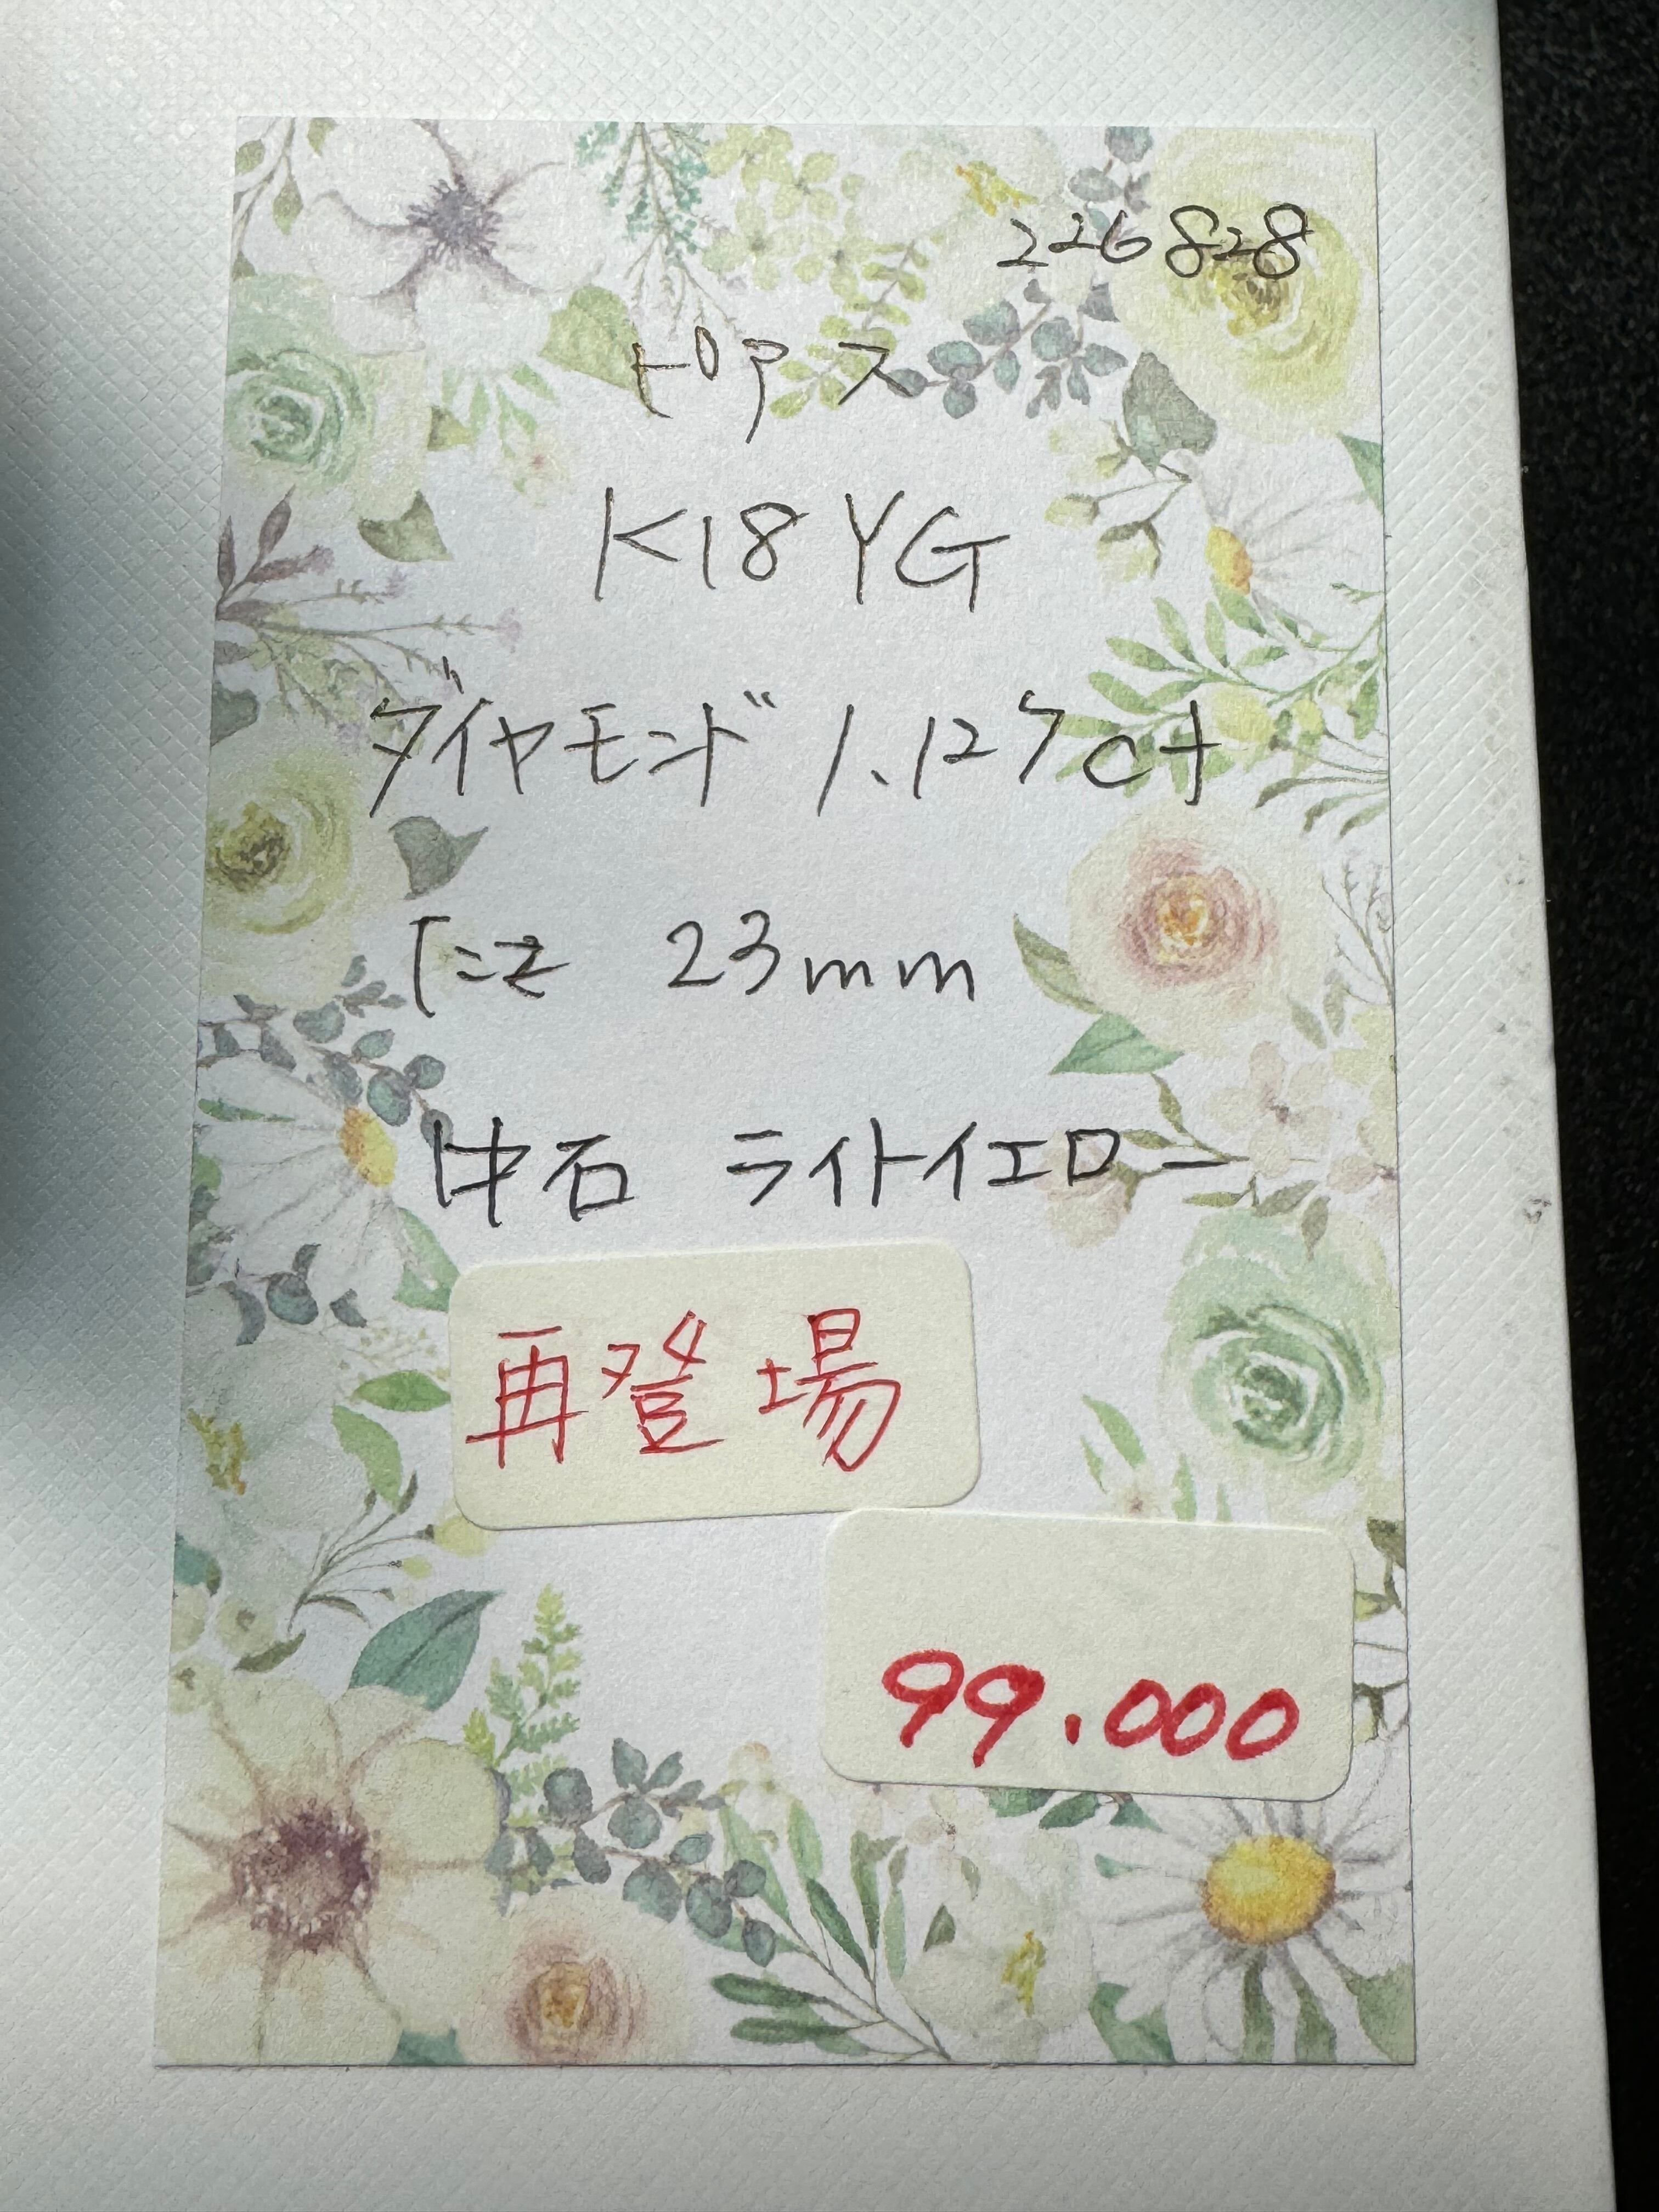 226828
トップス
K18 YG
ダイヤモンド 1.127ct
たて 23mm
中石 ライトイエロー
再登場
99.000